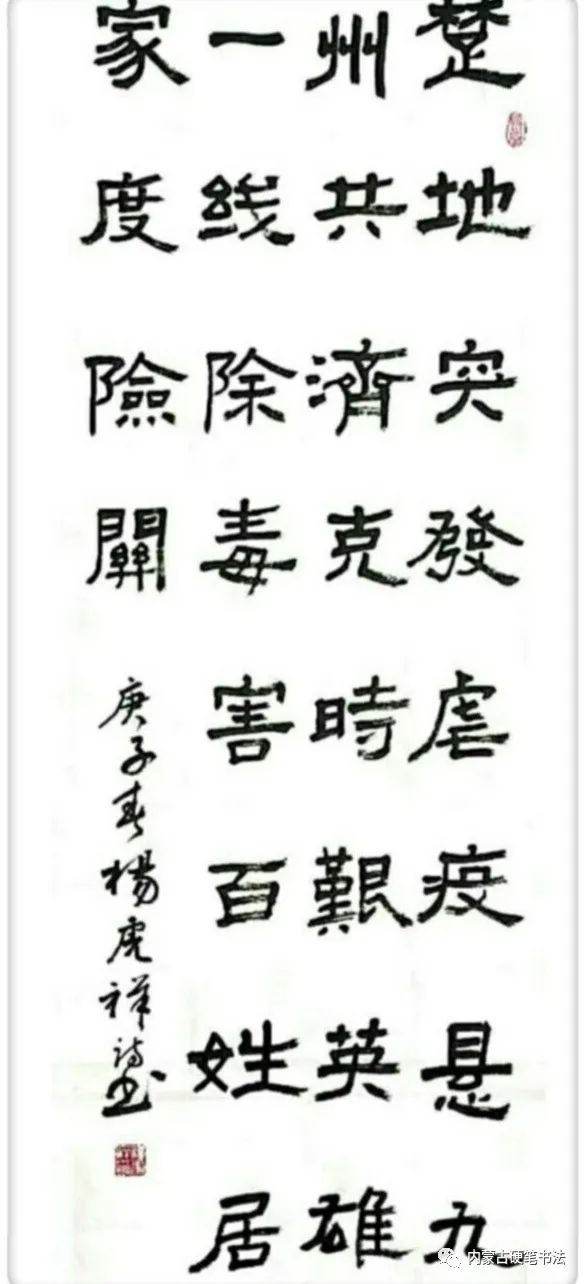 楚地突發虐疫悬九
州共濟克時艱英雄
一线除毒害百姓居
家度險關
庚子春楊虎祥诗书
内蒙古硬笔书法